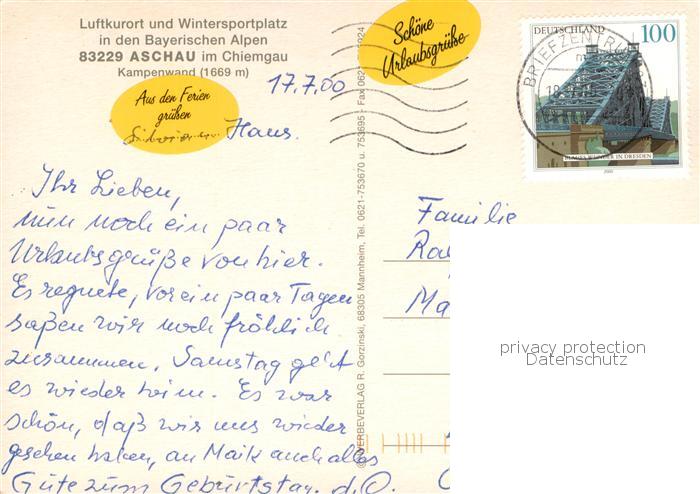 Luftkurort und Wintersportplatz
in den Bayerischen Alpen
83229 ASCHAU im Chiemgau
Kampenwand (1669 m)
17.7.00
Aus den Ferien
grüßen
Hans.
Schöne
Urlaubsgrüße
DEUTSCHLAND 100
BRIEFZENTRUM
BLAUES WUNDER IN DRESDEN
2000
Ihr Lieben,
nun noch ein paar
Urlaubsgrüße von hier.
Es regnete, vor ein paar Tagen
saßen wir noch fröhlich
zusammen. Samstag geht
es wieder heim. Es war
schön, daß wir uns wieder
gesehen haben, an Maik auch alles
Gute zum Geburtstag. d.O.
WERBEVERLAG R. Gorzinski, 68305 Mannheim, Tel. 0621-753670 u. 753695 - Fax 0621
Familie
Ra
Ma
privacy protection
Datenschutz